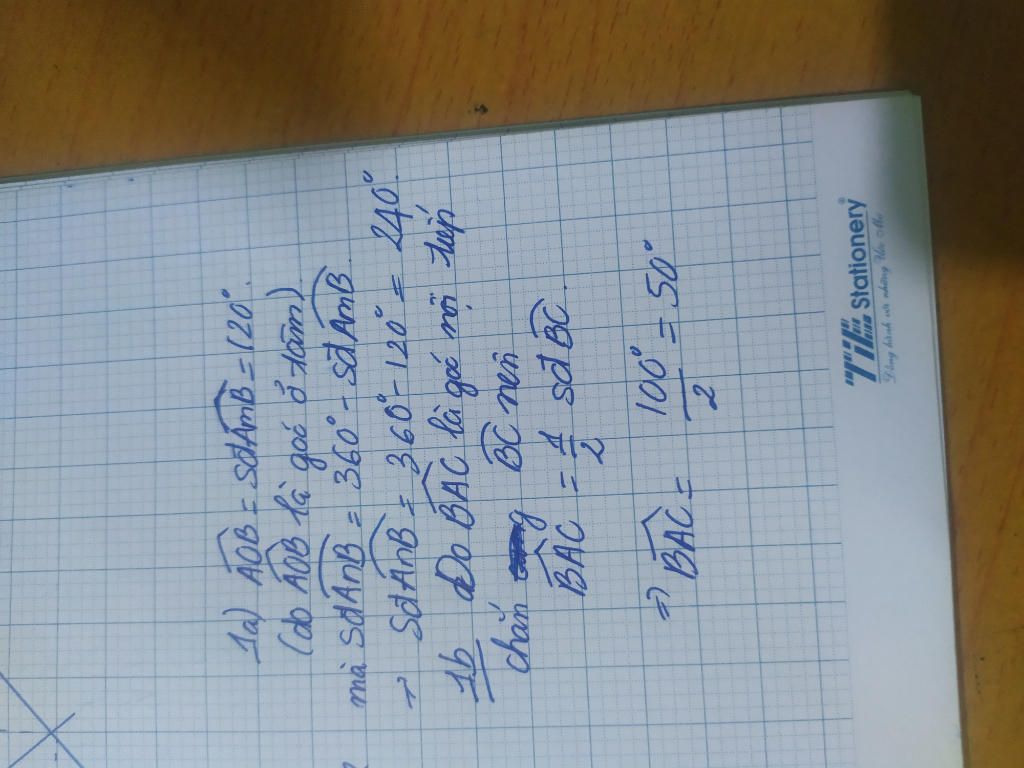 1a) AOB = SđAmB = 120°.
(do AOB là góc ở tâm)
mà SđAnB = 360° - SđAmB
→ SđAnB = 360° - 120° = 240°.
1b do BAC là góc nội tiếp
chắn BC nên
BAC = 1/2 sđ BC.
⇒ BAC = 100°/2 = 50°
TL Stationery®